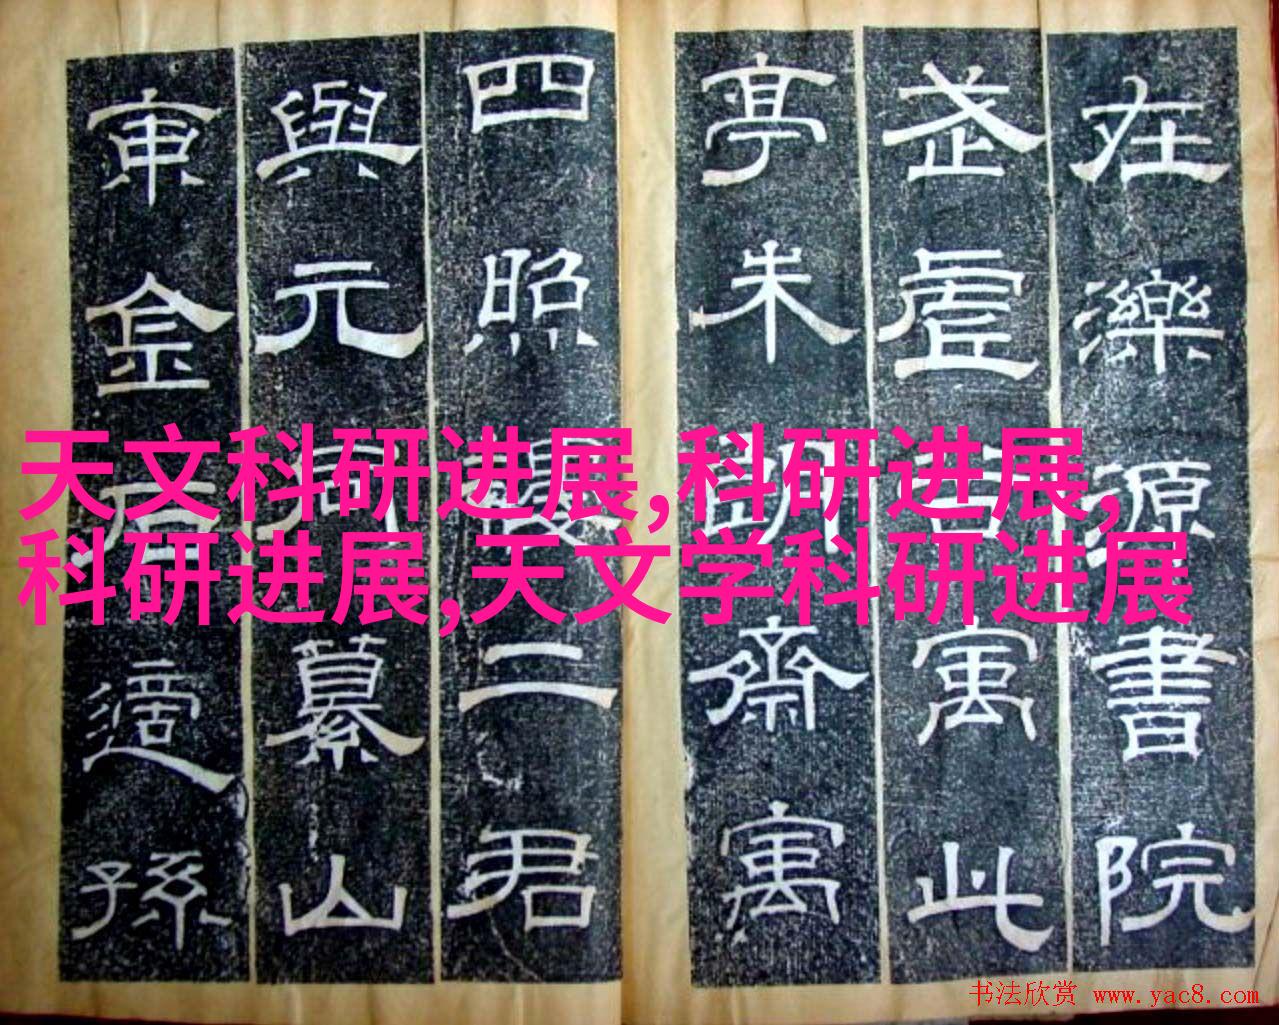 在濼源書院
武虛谷寓此
亭朱朗齋寓
四照樓二君
與元同纂山
東金石適孫
天文科研进展,科研进展,
科研进展,天文学科研进展
书法欣赏 www.yac8.com